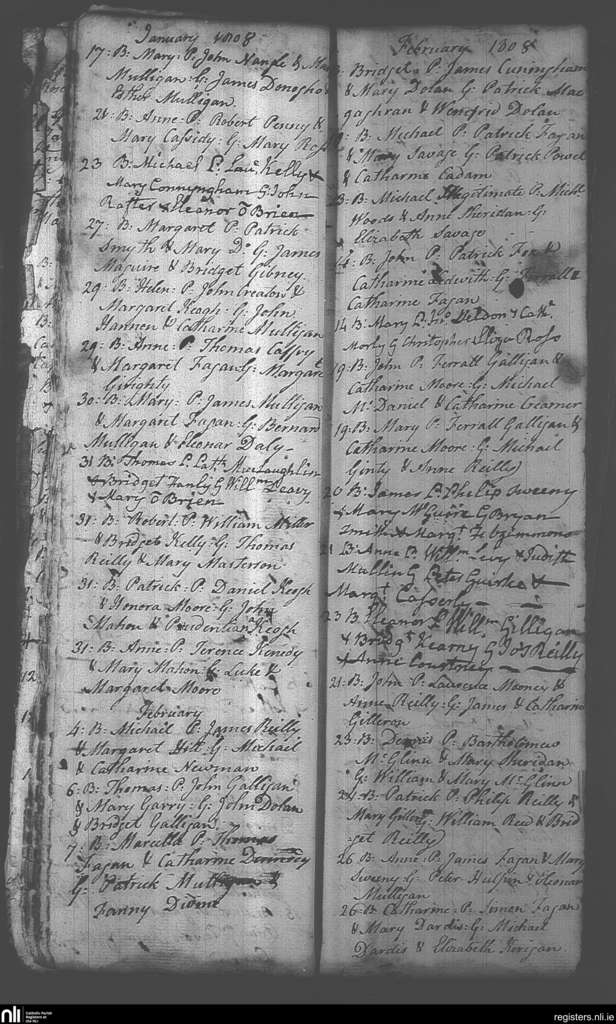 January 1808
17: B: Mary: P: John Nangle & Mary
Mulligan: G: James Donogho &
Esther Mulligan.
21: B: Anne: P: Robert Penny &
Mary Cassidy: G: Mary Ross
23 B. Michael P. Kelly &
Mary Connyngham G John
Rafter & Eleanor O Brien
27: B: Margaret P: Patrick
Smyth & Mary Do: G: James
Maguire & Bridget Gibney
29: B: Helen: P: John Creaton &
Margaret Keogh: G: John
Hannen & Catharine Mulligan
29: B: Anne: P: Thomas Caffry
& Margaret Fagan: G: Margaret
30: B: Mary: P: James Mulligan
& Margaret Fagan: G: Bernard
Mulligan & Eleonar Daly
31 B: Thomas P. Macloughlin
& Bridget G Willm Leavy
& Mary O Brien
31: B: Robert: P: William Miller
& Bridget Kelly: G: Thomas
Reilly & Mary Masterson
31: B: Patrick: P: Daniel Keogh
& Honora Moore: G: John
Mahon & Prudentiana Keogh
31: B: Anne: P: Terence Kenedy
& Mary Mahon: G: Luke &
Margaret Moore
February
4: B: Michael P: James Reilly
& Margaret Hett: G: Michael
& Catharine Newman
6: B: Thomas: P: John Galligan
& Mary Garry: G: John Dolan
& Bridget Galligan
7: B: Marcella P: Thomas
Fagan & Catharine
G: Patrick &
Fanny
February 1808
B: Bridget P: James Cuningham
& Mary Dolan G: Patrick Mac
gaghran & Wenefrid Dolan
B: Michael P: Patrick Fagan
& Mary Savage G: Patrick Power
& Catharine Cadam
B: Michael Illegitimate P: Michl
Woods & Anne Sheridan: G:
Elizabeth Savage
B: John P: Patrick Fox &
Catharine Ledwith: G: Ferrall &
Catharine Fagan
14 B: Mary P. Weldon & Cath.
G Christopher Eliza Ross
19: B: John P: Ferrall Galligan &
Catharine Moore: G: Michael
Mc Daniel & Catharine Creamer
19: B: Mary P: Ferrall Galligan &
Catharine Moore: G: Michael
Ginty & Anne Reilly
20 B: James P. Philip Sweeny
& Mary McGuire G Bryan
Smith & Margt Fitzsimmons
21 B Anne P. Willm Lucy & Judith
Mullin G Peter Guirke &
Margt Casserly
23 B Eleanor P Willm Gilligan
& Bridgt Kearny G Jos Reilly
& Anne Courtney
21: B: John P: Laurence Mooney &
Anne Reilly: G: James & Catharine
Gilleran
23: B: Dennis P: Bartholomew
Mc Glinn & Mary Sheridan
G: William & Mary Mc Glinn
24: B: Patrick P: Philip Reilly &
Mary G: William Reed & Brid
get Reilly
26 B: Anne: P: James Fagan & Mary
Sweeny G: Peter & Eleonar
Mulligan
26: B: Catharine: P: Simon Fagan
& Mary Dardis: G: Michael
Dardis & Elizabeth Kerigan
nli
Catholic Parish
Registers at
the NLI
registers.nli.ie